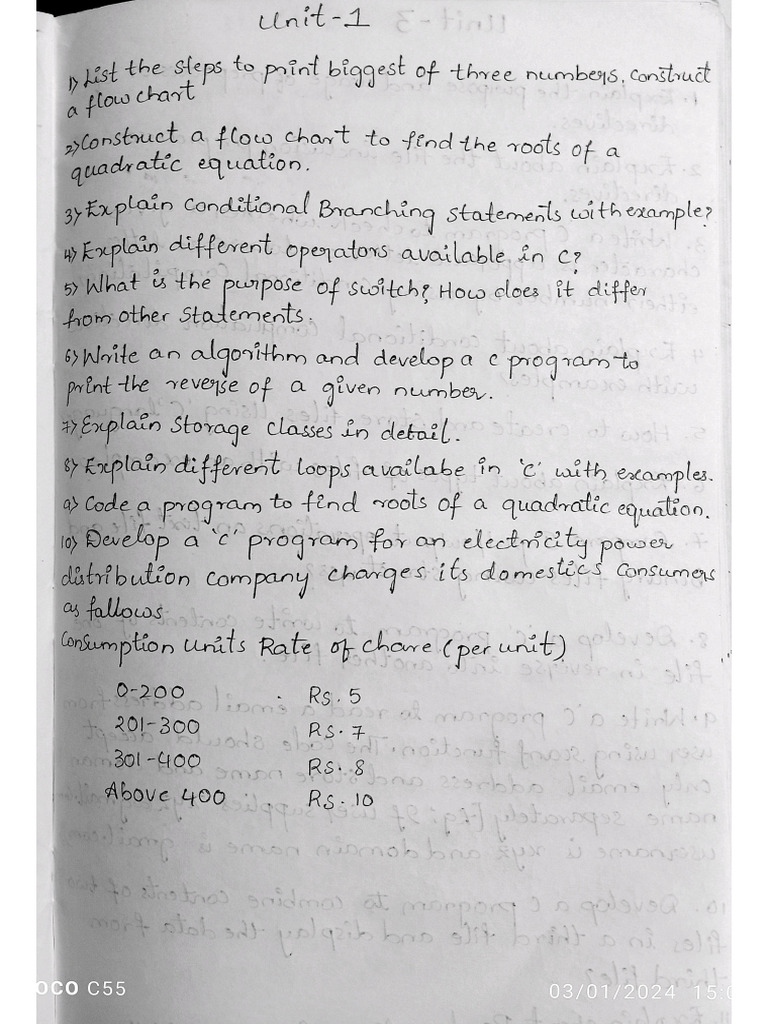 Unit-1
1) List the steps to print biggest of three numbers, construct
a flow chart
2) Construct a flow chart to find the roots of a
quadratic equation.
3) Explain Conditional Branching statements with example?
4) Explain different operators available in C?
5) What is the purpose of switch? How does it differ
from other statements.
6) Write an algorithm and develop a c program to
print the reverse of a given number.
7) Explain Storage classes in detail.
8) Explain different loops availabe in 'C' with examples.
9) Code a program to find roots of a quadratic equation.
10) Develop a 'C' program for an electricity power
distribution company charges its domestics consumers
as fallows
Consumption Units Rate of chare (per unit)
0-200 Rs. 5
201-300 Rs. 7
301-400 Rs. 8
Above 400 Rs. 10
OCO C55
03/01/2024 15:0